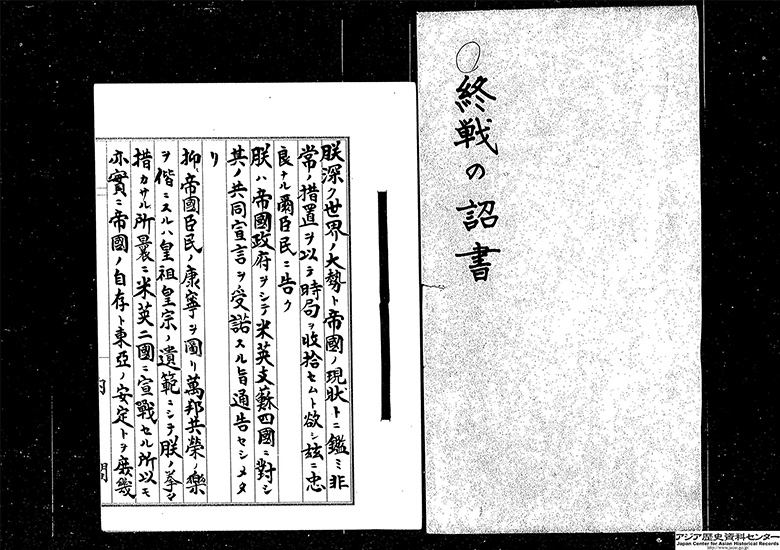 終戦の詔書
朕深ク世界ノ大勢ト帝國ノ現狀トニ鑑ミ非
常ノ措置ヲ以テ時局ヲ收拾セムト欲シ茲ニ忠
良ナル爾臣民ニ告ク
朕ハ帝國政府ヲシテ米英支蘇四國ニ對シ
其ノ共同宣言ヲ受諾スル旨通告セシメタ
リ
抑〻帝國臣民ノ康寧ヲ圖リ萬邦共榮ノ樂
ヲ偕ニスルハ皇祖皇宗ノ遺範ニシテ朕ノ拳〻
措カサル所曩ニ米英二國ニ宣戰セル所以モ
亦實ニ帝國ノ自存ト東亞ノ安定トヲ庶幾
アジア歴史資料センター
Japan Center for Asian Historical Records
http://www.jacar.go.jp